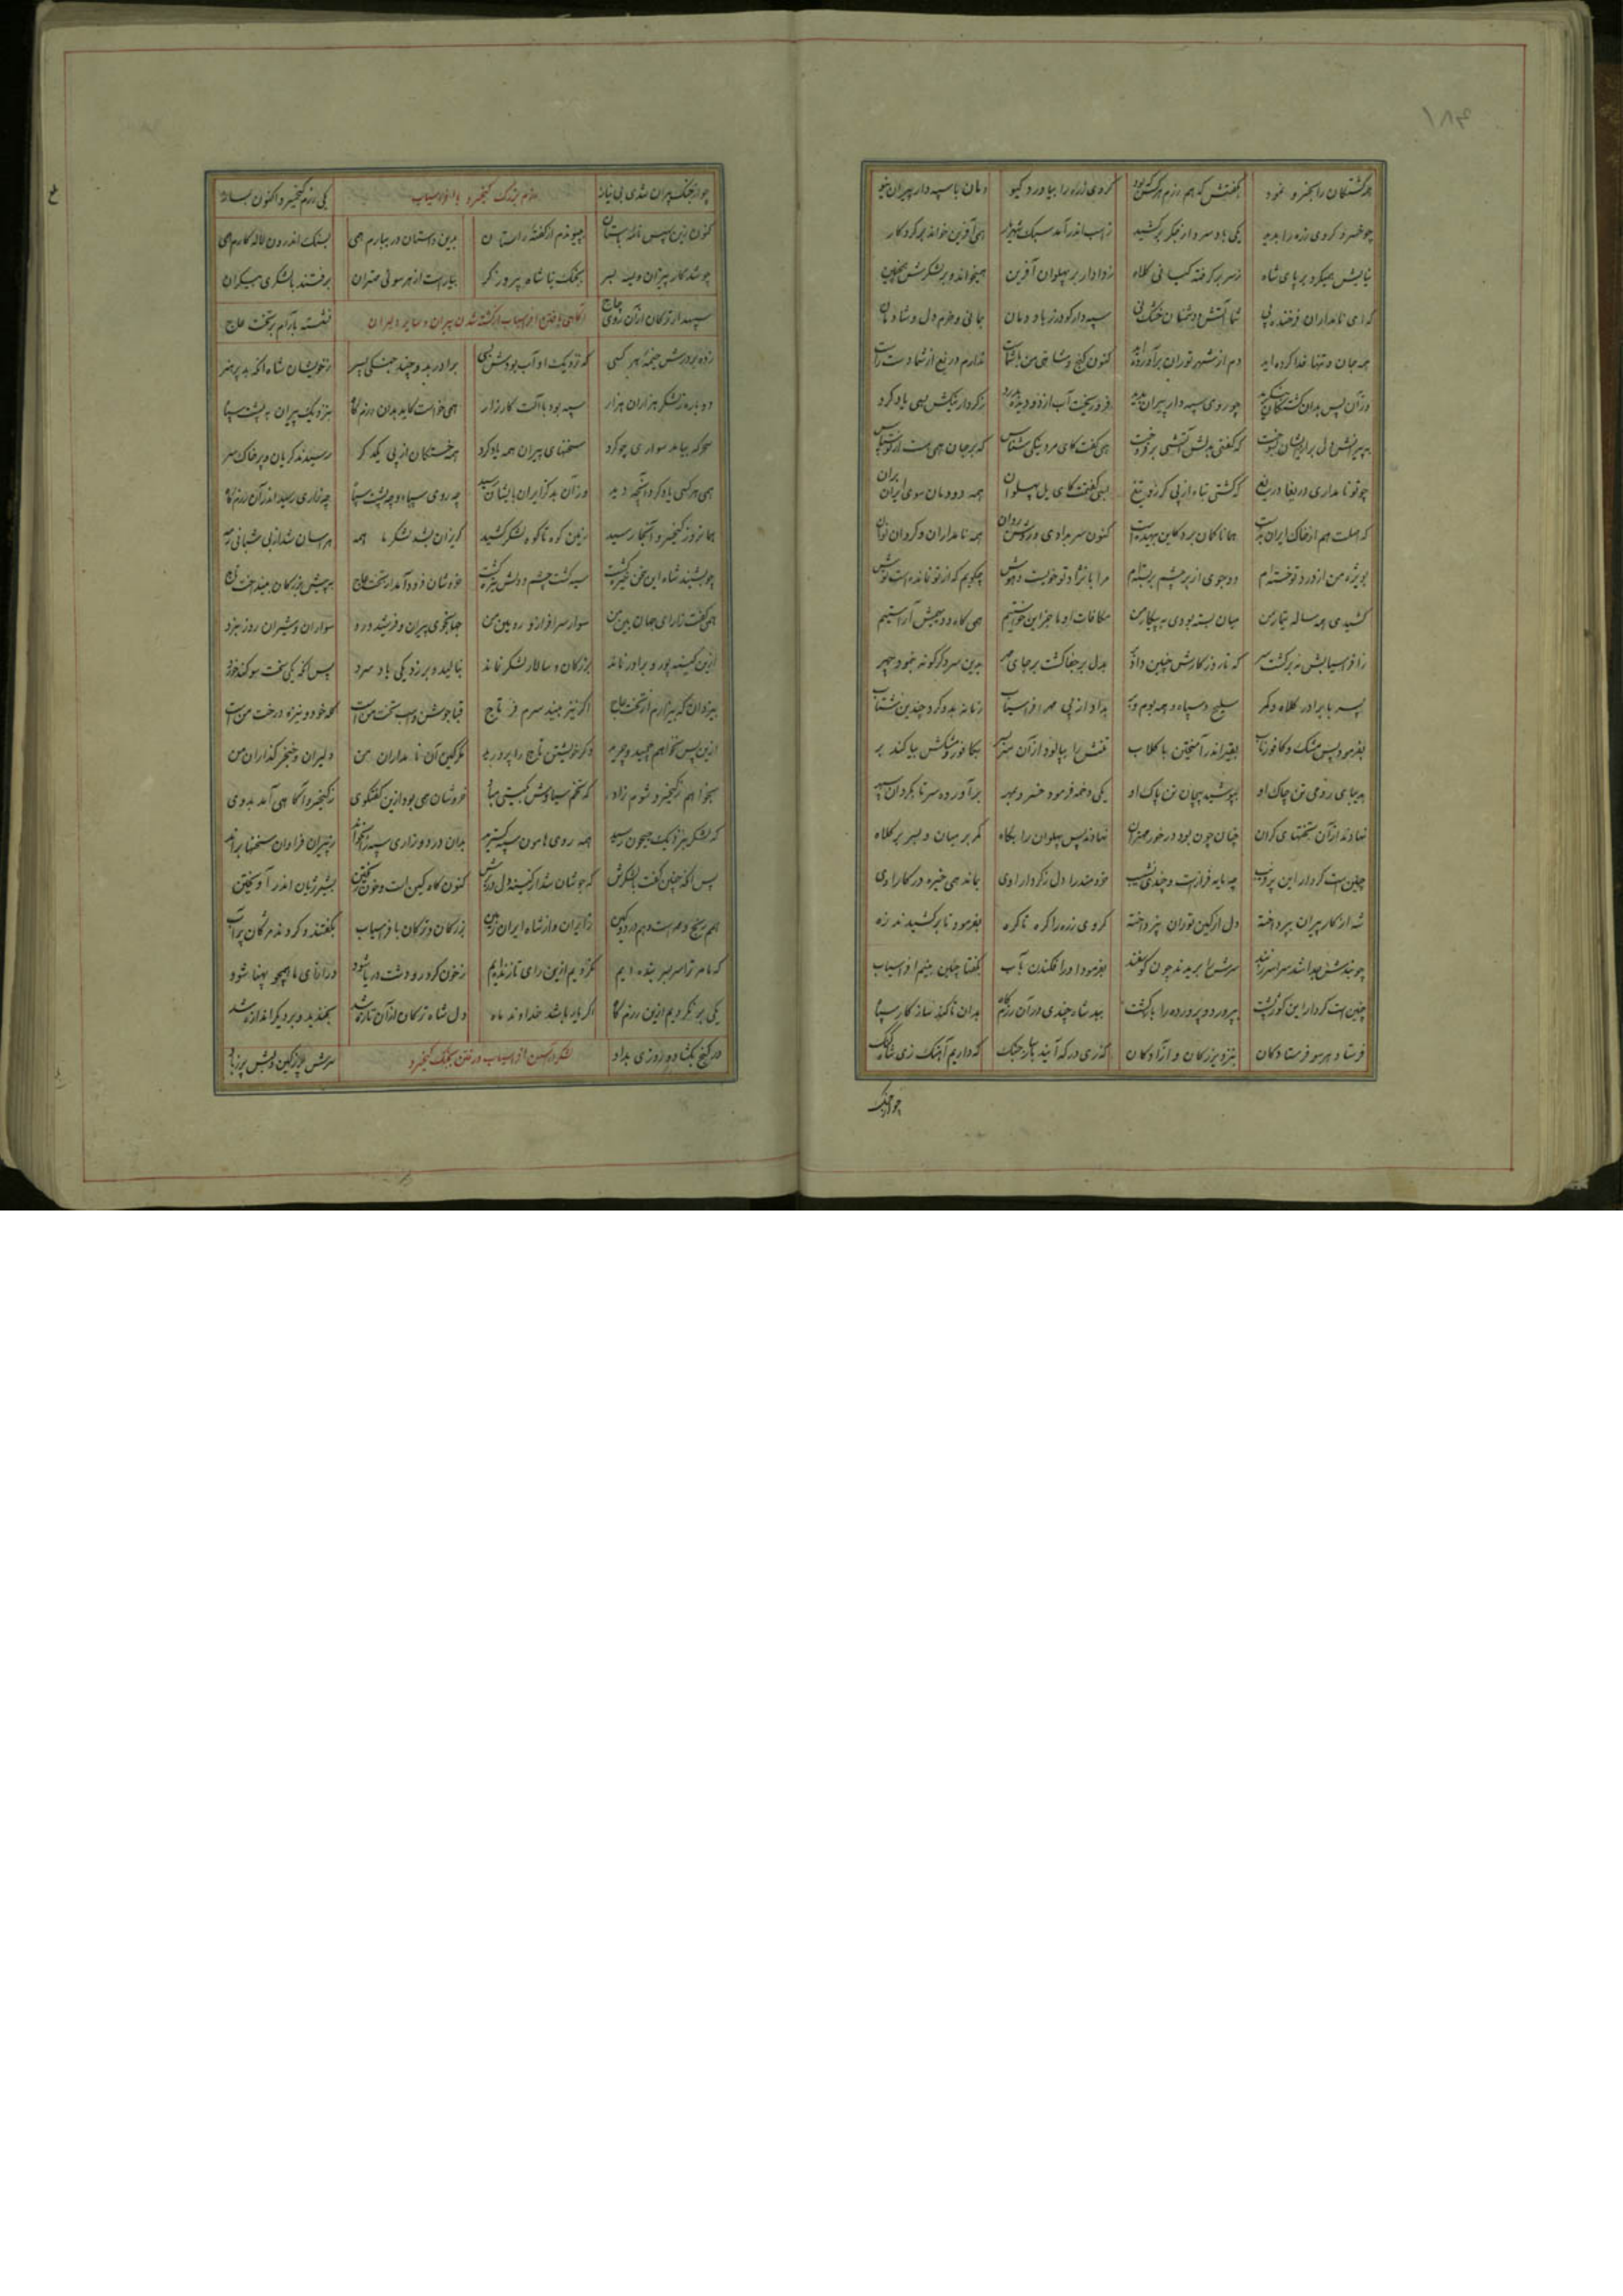 ۱۸۴
هر گشتگان را بخسرو نمود بگفتش که هم رزم هر کس که بود گروی زره را بیاورد گیو دمان با سپهدار پیران نیو
چو خسرو گروی زره را بدید یکی باد سرد از جگر برکشید ز اسب اندر آمد سبک شهریار همی آفرین خواند بر کردگار
نیایش همیکرد بر پای شاه ز سر برگرفته کیانی کلاه ز دادار بر پهلوان آفرین همیخواند و بر لشکرش همچنین
که ای نامداران فرخنده پی شما آتش و دشمنان خشک نی سپهدار گودرز با دودمان
همه جان و تنها فدا کرده اید دم از شهر توران برآورده اید کنون گنج و شاهی من با شماست ندارم دریغ از شما دست راست
وز آن پس بدان کشتگان بنگرید چو روی سپهدار پیران بدید فرو ریخت آب از دو دیده بدرد ز کردار نیکش همی یاد کرد
به پیرانش دل بر آنسان بسوخت که گفتی بدلش آتشی برفروخت
چو تو نامداری دریغا دریغ همه دودمان سوی ایران
که اصلت هم از خاک ایران بدست کنون سر بدادی و روشن روان همه نامداران و گردان توان
بویژه من از درد تو خسته ام دو جوی از بر چشم بربسته ام مرا با نژاد تو خویست و هوش چگویم که از تو نمانده است توش
کشیدی همه ساله تیمار من میان بسته بودی به پیکار من مکافات او ما جز این خواستیم همی گاه و دیهیمش آراستیم
ز افراسیابش نه برگشت سر که تا روز کارش چنین داد بر بدل بر جفا گشت بر جای مهر بدین سر دگرگونه بنمود چهر
پسر با برادر کلاه و کمر سلیح و سپاه و همه بوم و بر بداد از پی مهر افراسیاب زمانه بدو کرد چندین شتاب
بفرمود پس مشک و کافور ناب بعنبر اندر آمیختن با گلاب تنش را بیالود از آن سربسر بکافور و مشکش بیاکند بر
بدیبای رومی تن پاک او بپوشید پیچان تن پاک او یکی دخمه فرمود خسرو بمهر برآورده سر تا بگردان سپهر
نهادند از آن تختهای گران چنان چون بود درخور مهتران نهادند پس پهلوان را بگاه کمر بر میان و بسر بر کلاه
چنین است کردار این پر فریب چه مایه فرازست و چندی نشیب خردمند را دل ز کردار اوی بماند همی خیره در کار اوی
شه از کار پیران بپرداخته دل از کین توران نپرداخته گروی زره را گره تا گره بفرمود تا برکشیدند زه
چو بندش جدا شد سراسر ز بند سرش را بریدند چون گوسفند بفرمود او را فکندن بآب بگفتا چنین بینم افراسیاب
چنین است کردار این گوژ پشت بپرورد و پرورده را باز کشت ببد شاه چندی در آن رزمگاه بدان تا کند ساز کار سپاه
فرستاد هر سو فرستادگان بنزد بزرگان و آزادگان که داریم آهنگ زی شاه گنگ
چو از جنگ
چو از جنگ پیران شدی بی نیاز رزم بزرگ کیخسرو با افراسیاب یکی رزم کیخسرو اکنون بساز
کنون زین سپس نامه باستان بپیوندم از گفته راستان برین داستان در ببارم همی بسنگ اندرون لاله کارم همی
چو شد کار پیران ویسه بسر بجنگ نیا شاه پیروزگر بیاراست از هر سوئی مهتران برفتند با لشکری بیکران
سپهدار ترکان از آن روی چاچ آگاهی یافتن افراسیاب از کشته شدن پیران و سایر دلیران نشسته بآرام بر تخت عاج
زده بر درش خیمه هر کسی که نزدیک او آب بودش بسی برادر بد و چند جنگی پسر ز خویشان شاه آنکه بد پرهنر
دو باره ز لشکر هزاران هزار سپه بود با آلت کارزار همی خواست کاید بدان رزمگاه بنزدیک پیران به پشت سپاه
سحرگه بیامد سواری چو گرد سخنهای پیران همه یاد کرد همه خستگان از پی یکدگر رسیدند گریان و پر خاک سر
همی هر کسی یاد کرد آنچه دید وز آن بد کز ایران بایشان رسید چه روی سپاه و چه پشت سپاه چه زاری رسید اندر آن رزمگاه
همانروز کیخسرو آنجا رسید زمین کوه تا کوه لشکر کشید گریزان بشد لشکر ما همه هراسان شد از بی شبانی رمه
چو بشنید شاه این سخن خیره گشت سیه گشت چشم و دلش تیره گشت خروشان فرود آمد از تخت عاج به پیش بزرگان بینداخت تاج
همی گفت زار ای جهان بین من سوار سرافراز و رویین من جهانجوی پیران و فرشیدورد سواران و شیران روز نبرد
ازین کینه پور و برادر نماند بزرگان و سالار لشکر نماند بنالید و برزد یکی باد سرد پس آنگه یکی سخت سوگند خورد
بیزدان که بیزارم از تخت عاج اگر نیز بیند سرم فر تاج قبا جوشن و اسب تخت من است کله خود و نیزه درخت من است
ازین پس نخواهم چمید و چرید دگر خویشتن تاج را پرورید مگر کین آن نامداران من دلیران و خنجر گذاران من
بخواهم ز کیخسرو شوم زاد که تخم سیاوش بگیتی مباد خروشان همی بود ازین گفتگوی ز کیخسرو آگاهی آمد بدوی
که لشکر بنزدیک جیحون رسید همه روی هامون سپه گسترید بدان درد و زاری سپه را بخواند ز پیران فراوان سخنها براند
پس آنگه چنین گفت با لشکرش که جوشان شد از کینه دل در برش کنون گاه کین است و خون ریختن بشیر ژیان اندر آویختن
هم رنج و مهر است و هم درد و کین ز ایران و از شاه ایران زمین بزرگان و ترکان با افراسیاب بگفتند و کردند مژگان پرآب
که ما مر ترا سربسر بنده ایم نگردیم ازین رای تا زنده ایم ز خون کوه و دشت دریا شود درازای ما همچو پهنا شود
یکی بر نگردیم ازین رزمگاه اگر یار باشد خداوند ماه دل شاه ترکان از آن تازه شد بخندید و بر دیگر اندازه شد
در گنج بگشاد و روزی بداد لشکر کشیدن افراسیاب در رفتن بجنگ کیخسرو سرش پر ز کین و لبش پر ز باد